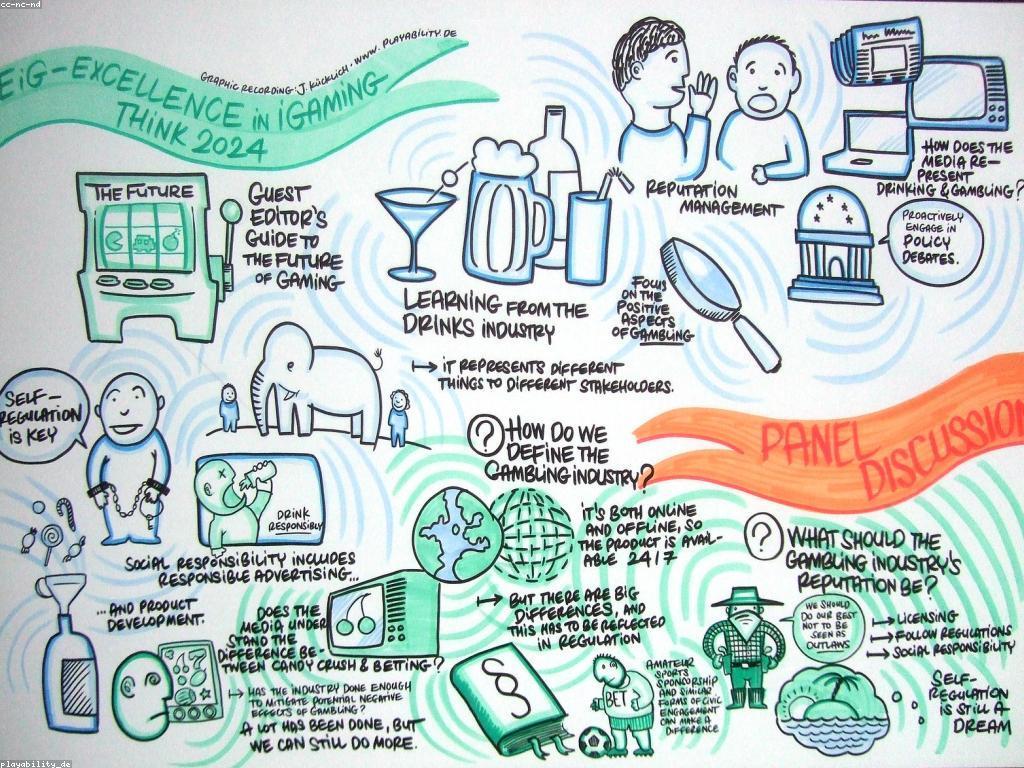 cc-nc-nd
EiG-EXCELLENCE in iGAMING
THINK 2024
GRAPHIC RECORDING: J. KÜCKLICH · WWW.PLAYABILITY.DE
THE FUTURE
GUEST
EDITOR'S
GUIDE TO
THE FUTURE
OF GAMING
LEARNING FROM THE
DRINKS INDUSTRY
REPUTATION
MANAGEMENT
HOW DOES THE
MEDIA RE-
PRESENT
DRINKING & GAMBLING?
PROACTIVELY
ENGAGE IN
POLICY
DEBATES.
FOCUS
ON THE
POSITIVE
ASPECTS
OF GAMBLING
IT REPRESENTS DIFFERENT
THINGS TO DIFFERENT STAKEHOLDERS.
SELF-
REGULATION
IS KEY
DRINK
RESPONSIBLY
SOCIAL RESPONSIBILITY INCLUDES
RESPONSIBLE ADVERTISING...
...AND PRODUCT
DEVELOPMENT.
DOES THE
MEDIA UNDER
STAND THE
DIFFERENCE BE-
TWEEN CANDY CRUSH & BETTING?
HAS THE INDUSTRY DONE ENOUGH
TO MITIGATE POTENTIAL NEGATIVE
EFFECTS OF GAMBLING?
A LOT HAS BEEN DONE, BUT
WE CAN STILL DO MORE.
PANEL
DISCUSSION
? HOW DO WE
DEFINE THE
GAMBLING INDUSTRY?
IT'S BOTH ONLINE
AND OFFLINE, SO
THE PRODUCT IS AVAIL-
ABLE 24/7
BUT THERE ARE BIG
DIFFERENCES, AND
THIS HAS TO BE REFLECTED
IN REGULATION
§
BET
AMATEUR
SPORTS
SPONSORSHIP
AND SIMILAR
FORMS OF CIVIC
ENGAGEMENT
CAN MAKE A
DIFFERENCE
? WHAT SHOULD THE
GAMBLING INDUSTRY'S
REPUTATION BE?
WE SHOULD
DO OUR BEST
NOT TO BE
SEEN AS
OUTLAWS
LICENSING
FOLLOW REGULATIONS
SOCIAL RESPONSIBILITY
SELF-
REGULATION
IS STILL A
DREAM
playability_de